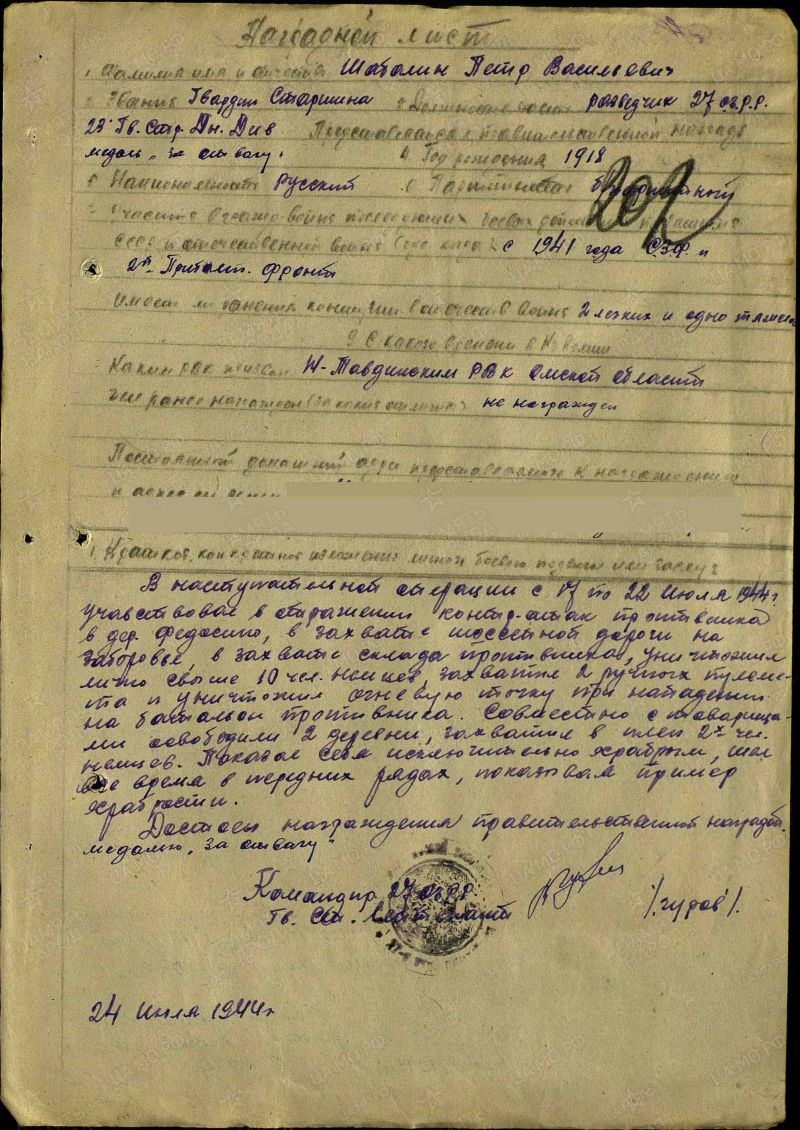 Наградной лист
1 Фамилия имя и отчество Шабалин Петр Васильевич
2 Звание Гвардии Старшина 3 Должность часть разведчик 27 о.г.р.р.
23 Гв. Стр. Дн. Див Представляется к правительственной награде
медаль "За отвагу" 4 Год рождения 1918
5 Национальность русский 6 Партийность
202
7 Участие в
СССР и отечественной войне с 1941 года С.З.Ф и
2й Прибалт. фронт
Имеет ли ранения 2 легких и одно
9 С какого времени в Кр Армии
Каким РВК призван Н-Тавдинским РВК Омской области
Чем ранее награжден (за какие отличия) не награжден
Постоянный домашний адрес представляемого к награждению
и
1. Краткое, конкретное изложение личного боевого подвига или заслуг
В наступательной операции с 17 по 22 июля 1944 г.
учавствовал в отражении контр-атак противника
в дер. Федосино, в захвате шоссейной дороги на
Заборовье, в захвате склада противника, уничтожил
лично свыше 10 чел. немцев, захватил 2 ручных пулеме-
та и уничтожил огневую точку при нападении
на батальон противника. Совместно с товарища-
ми освободили 2 деревни, захватил в плен 2х чел.
немцев. Показал себя исключительно храбрым, шел
все время в передних рядах, показывая пример
храбрости.
Достоен награждения правительственной наградой
медалью "За отвагу"
Командир 27 о.г.р.р.
Гв. Ст. Лейтенант /Гуров/.
24 июля 1944 г.